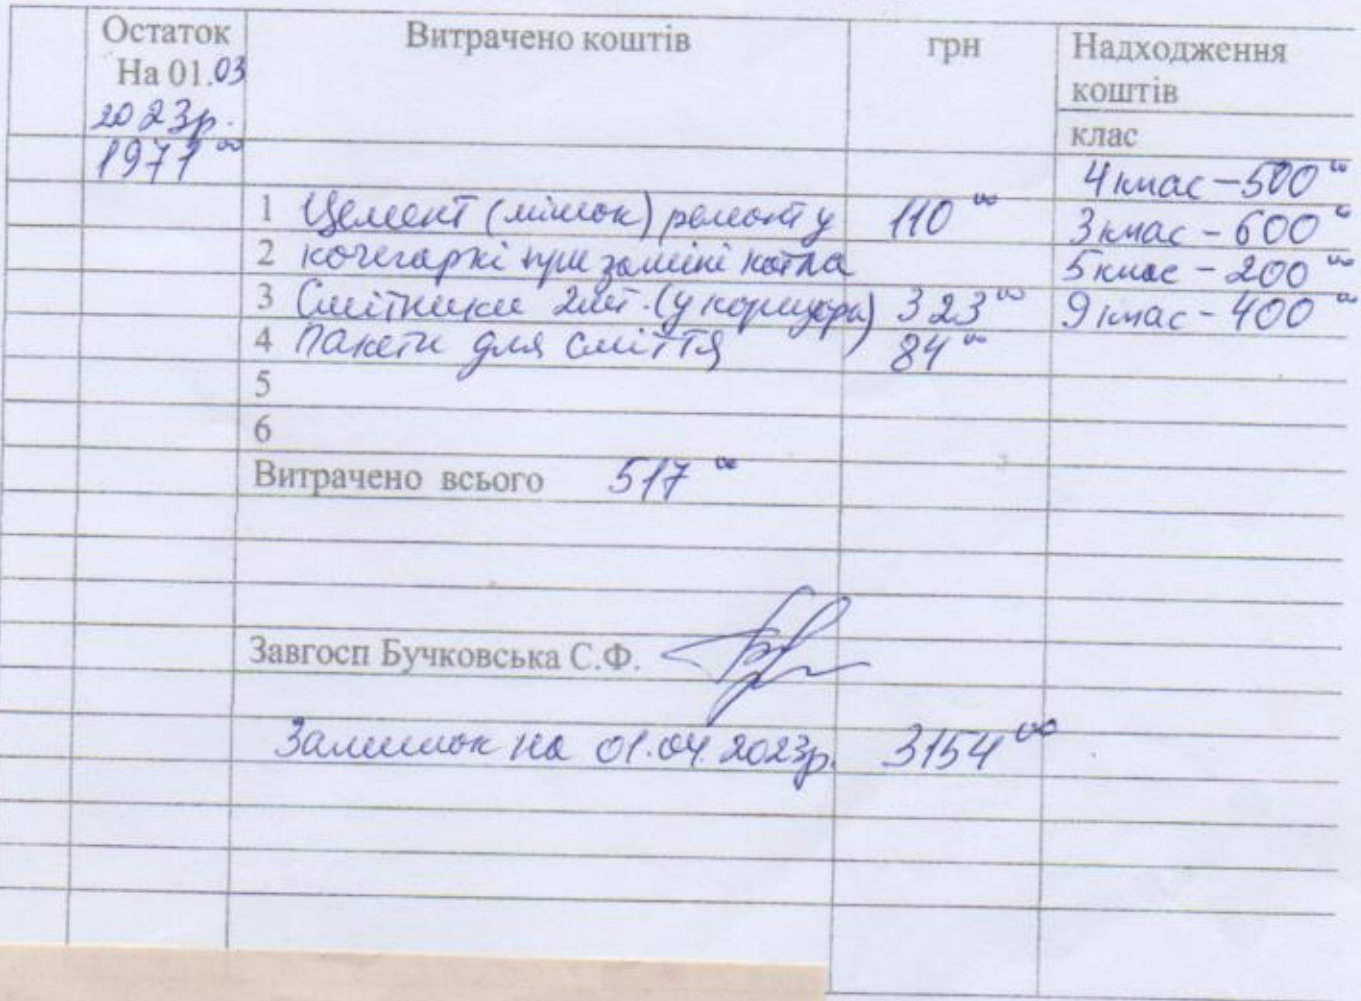 Остаток Витрачено коштів грн Надходження
На 01.03 коштів
2023р. клас
1971 00 4 клас – 500 00
1 Цемент (мішок) ремонт у 110 00 3 клас – 600 00
2 кочегаркі при заміні котла 5 клас – 200 00
3 Смітники 2шт. (у коридори) 323 00 9 клас – 400 00
4 Пакети для сміття 84 00
5
6
Витрачено всього 517 00
Завгосп Бучковська С.Ф.
Залишок на 01.04.2023р. 3154 00